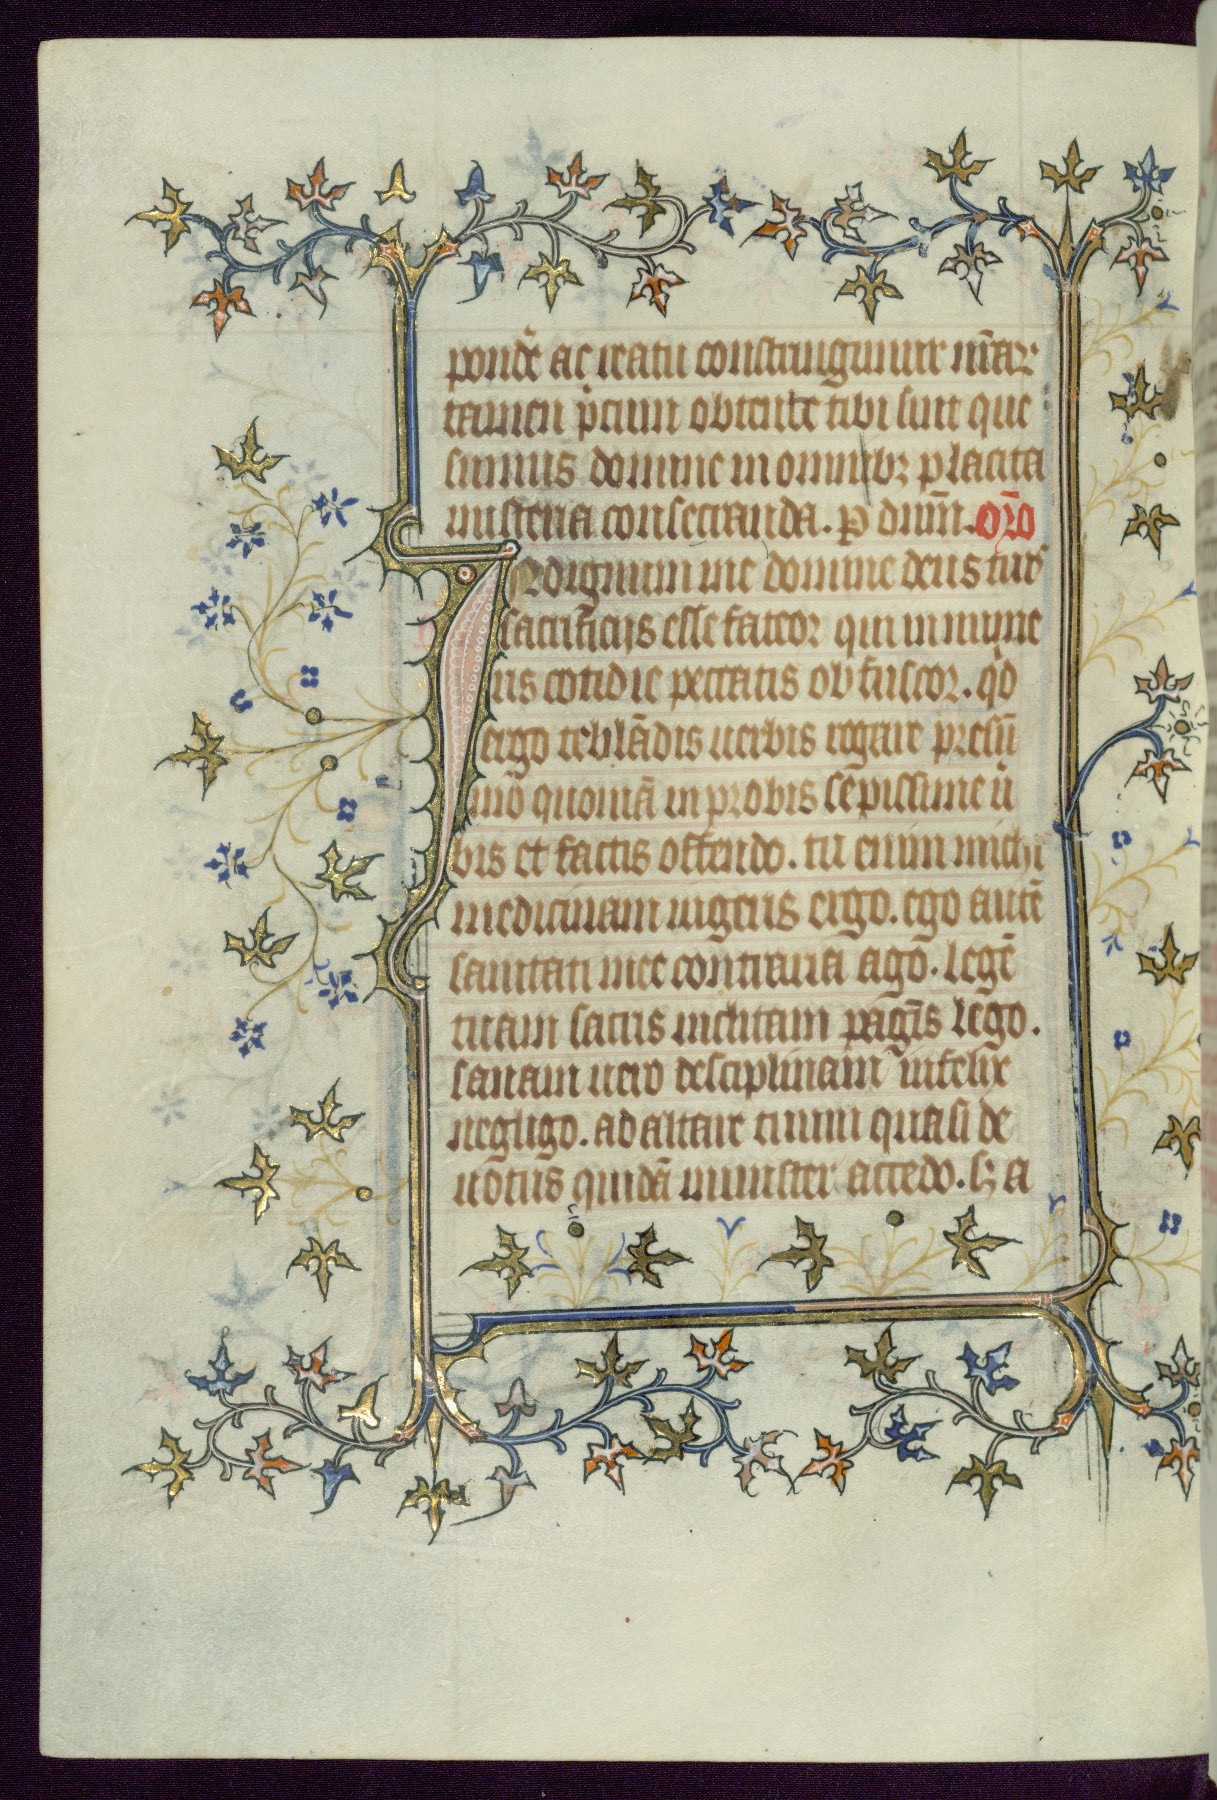 pond̾e ac reatu constringuntur nr̄ar
tamen p̄cum obtentu tibi sint que
sumus domine in omnibꝫ placita
misteria consecranda. ꝑ dnm̄. or̄o
Indignum me domine deus tuis
sacrificiis esse fateor qui innume
ris cotidie peccatis obfuscor. qͦd
ergo te blādis uerbis rogare presū
mo quoniā in probis sepissime ū
bis et factis offendo. tu enim michi
medicinam ingeris ergo. ego autē
sanitati mee contraria ago. legē
tuam sacris inclitam paginis lego.
sanam uero desciplinam infelix
negligo. ad altare tuum quasi de
uotus quidā minister accedo. sꝫ a